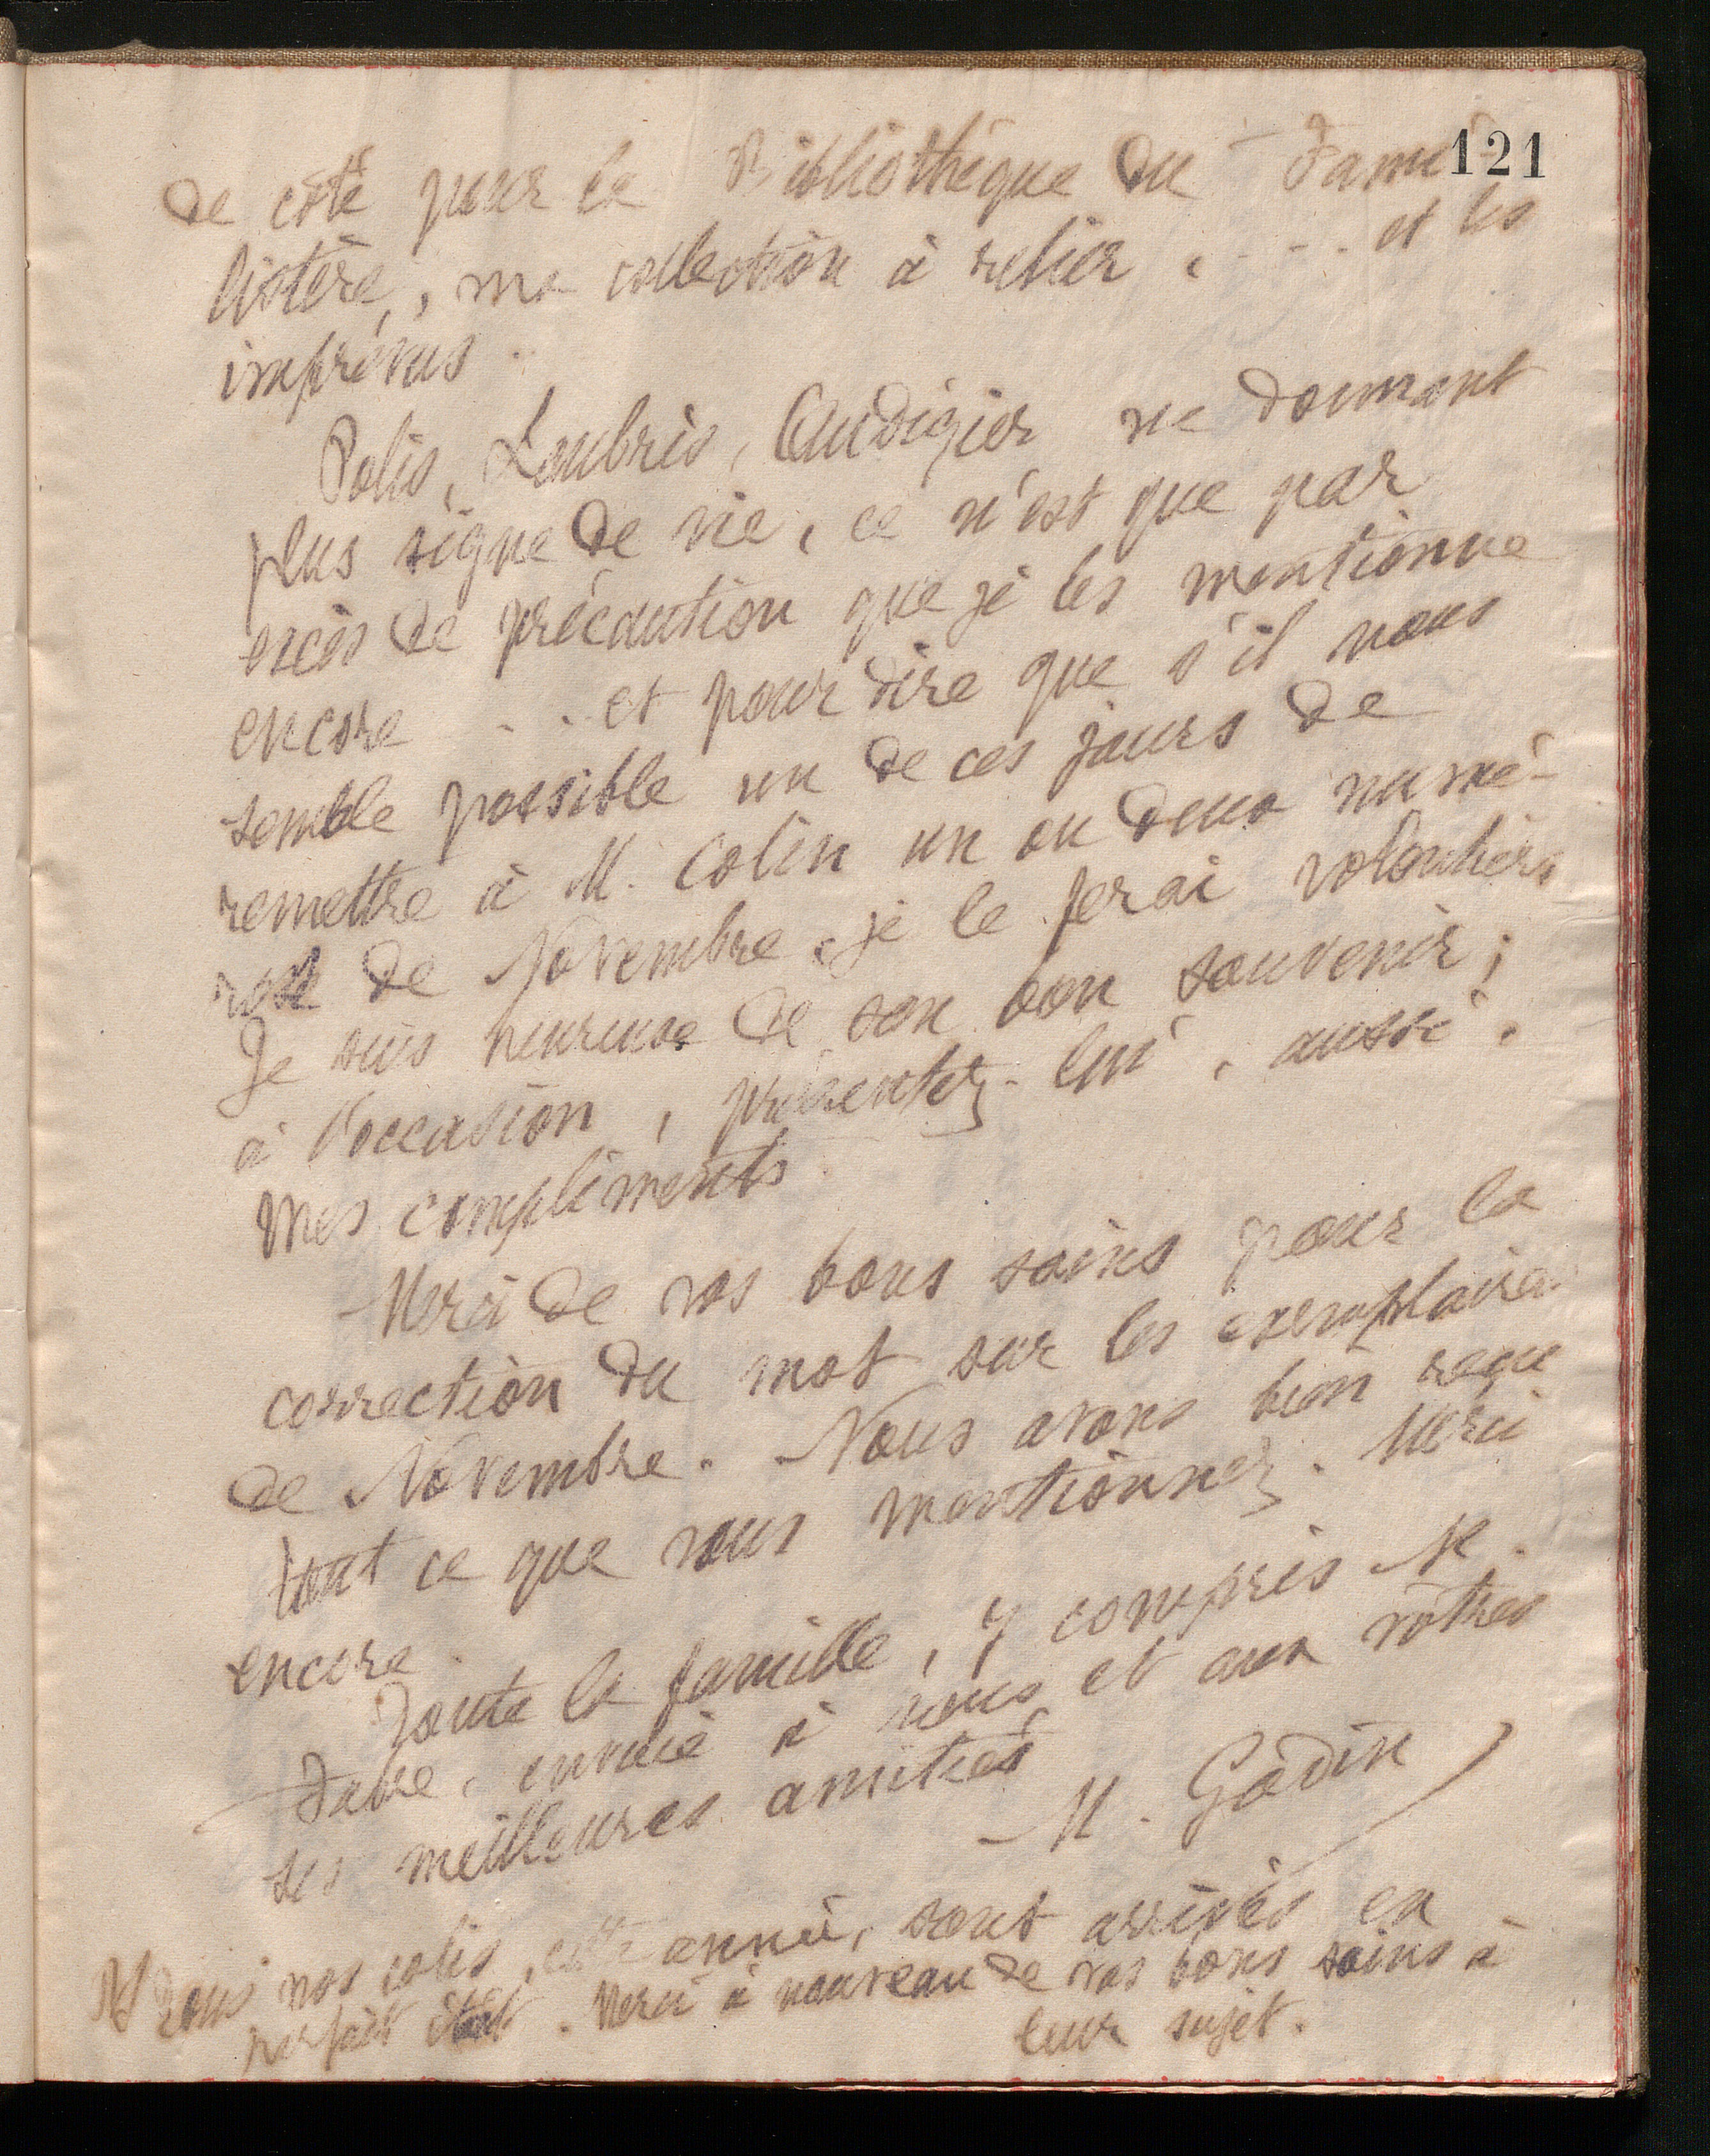 121
de côté pour la Bibliothèque du Fami
listère, ma collection à relier, . . . et les
imprévus.
Polis, Loubris, Audigier ne donnant
plus signe de vie, ce n'est que par
excès de précaution que je les mentionne
encore . . . et pour dire que s'il vous
semble possible un de ces jours de
remettre à M. Colin un ou deux numé-
ros de Novembre, je le ferai volontiers
Je suis heureuse de son bon souvenir ;
à l'occasion, présentez-lui, aussi,
mes compliments.
Merci de vos bons soins pour la
correction du mot sur les exemplaires
de Novembre. Nous avons bien reçu
tout ce que vous mentionnez. Merci
encore.
Toute la famille, y compris M.
Fabre, envoie à vous et aux vôtres
ses meilleures amitiés
M. Godin
Tous vos colis, cette année, sont arrivés en
parfait état. Merci à nouveau de vos bons soins à
leur sujet.